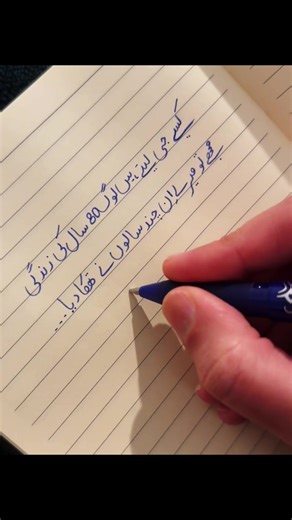 کیسے جی لیتے ہیں لوگ 80 سال کی زندگی
مجھے تو میرے ان چند سالوں نے تھکا دیا...